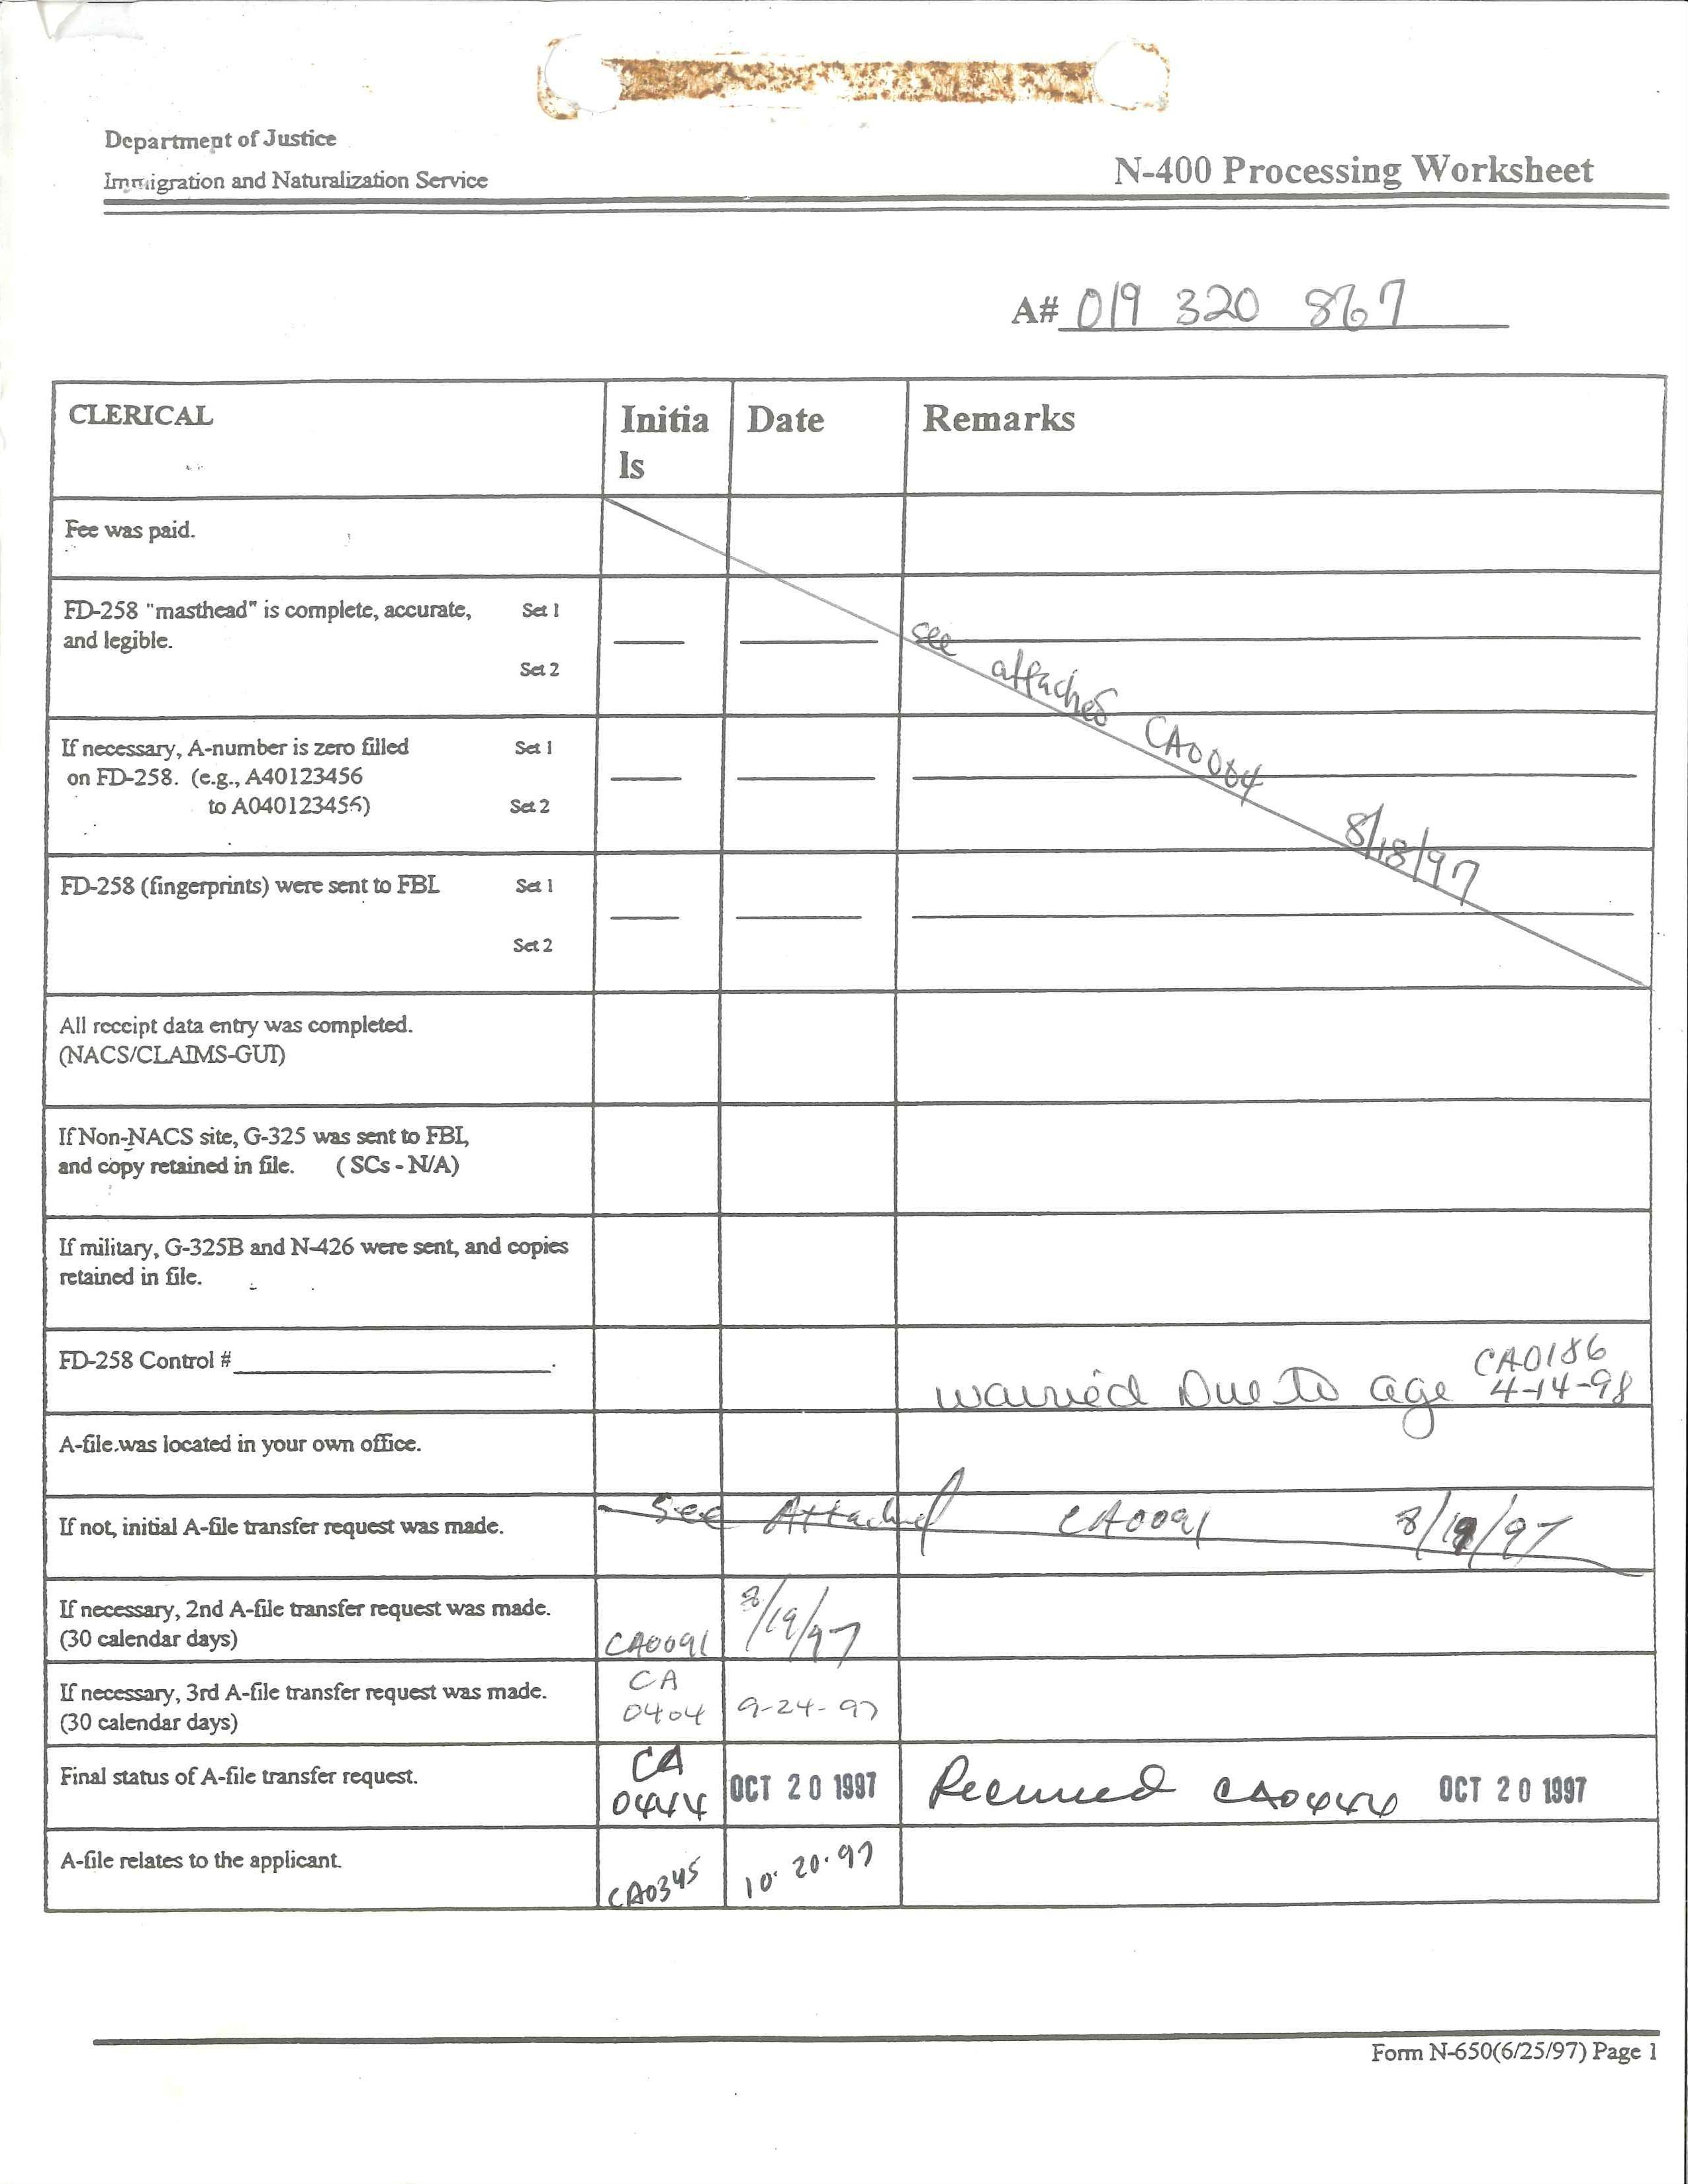 Department of Justice
Immigration and Naturalization Service
N-400 Processing Worksheet
A# 019 320 867
CLERICAL
Initia
ls
Date
Remarks
Fee was paid.
FD-258 "masthead" is complete, accurate, Set 1
and legible.
Set 2
see attached CA0064 8/18/97
If necessary, A-number is zero filled Set 1
on FD-258. (e.g., A40123456
to A040123456) Set 2
FD-258 (fingerprints) were sent to FBI. Set 1
Set 2
All receipt data entry was completed.
(NACS/CLAIMS-GUI)
If Non-NACS site, G-325 was sent to FBI,
and copy retained in file. ( SCs - N/A)
If military, G-325B and N-426 were sent, and copies
retained in file.
FD-258 Control #
CA0186
Due To age 4-14-98
A-file was located in your own office.
If not, initial A-file transfer request was made. See Attached CA0091 8/19/97
If necessary, 2nd A-file transfer request was made.
(30 calendar days) CA0091 8/19/97
If necessary, 3rd A-file transfer request was made. CA
(30 calendar days) 0404 9-24-97
Final status of A-file transfer request. CA
0444 OCT 20 1997 Received CA0444 OCT 20 1997
A-file relates to the applicant. CA0345 10-20-97
Form N-650(6/25/97) Page 1